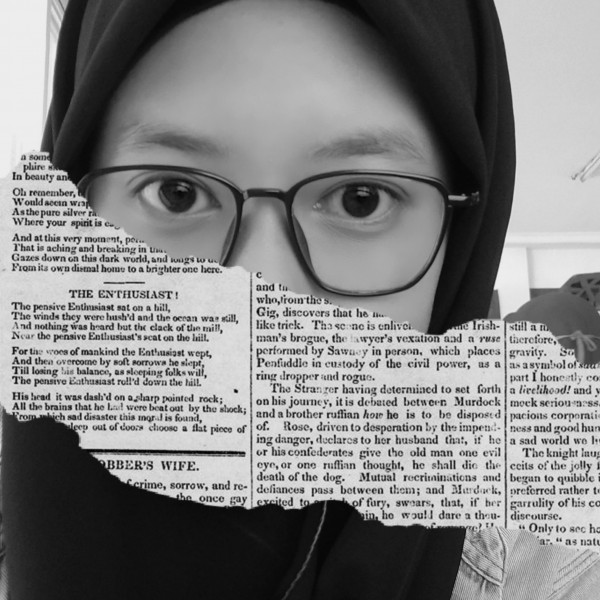 a some
phire
In beauty and
Oh remember,
Would seem wrap
As the pure silver ra
Where your spirit is
And at this very moment,
That is aching and breaking in
Gazes down on this dark world, and longs to
From its own dismal home to a brighter one here.
THE ENTHUSIAST!
The pensive Enthusiast sat on a hill,
The winds they were hush'd and the ocean was still,
And nothing was heard but the clack of the mill,
Near the pensive Enthusiast's seat on the hill.
For the woes of mankind the Enthusiast wept,
And then overcome by soft sorrows he slept,
Till losing his balance, as sleeping folks will,
The pensive Enthusiast roll'd down the hill.
His head it was dash'd on a sharp pointed rock;
All the brains that he had were beat out by the shock;
From which sad disaster this moral is found,
deep out of doors choose a flat piece of
OBBER'S WIFE.
f crime, sorrow, and re-
the once gay
c
and th
who, from the s
Gig, discovers that he
like trick. The scene is enliven the Irish-
man's brogue, the lawyer's vexation and a ruse
performed by Sawney in person, which places
Penfiddle in custody of the civil power, as a
ring dropper and rogue.
The Stranger having determined to set forth
on his journey, it is debated between Murdock
and a brother ruffian how he is to be disposed
of. Rose, driven to desperation by the impend-
ing danger, declares to her husband that, if he
or his confederates give the old man one evil
eye, or one ruffian thought, he shall die the
death of the dog. Mutual recriminations and
defiances pass between them; and Murdock,
excited to of fury, swears, that, if her
ain, he would dare a thou-
of revenge!
still a
therefore,
gravity. So
as a symbol of
part I honestly
a livelihood! and
mock seriousness.
pacious corporati
ness and good hum
a sad world we
The knight laug
ceits of the jolly
began to quibble
preferred rather t
garrulity of his co
discourse.
" Only to see ho
far, " as natu